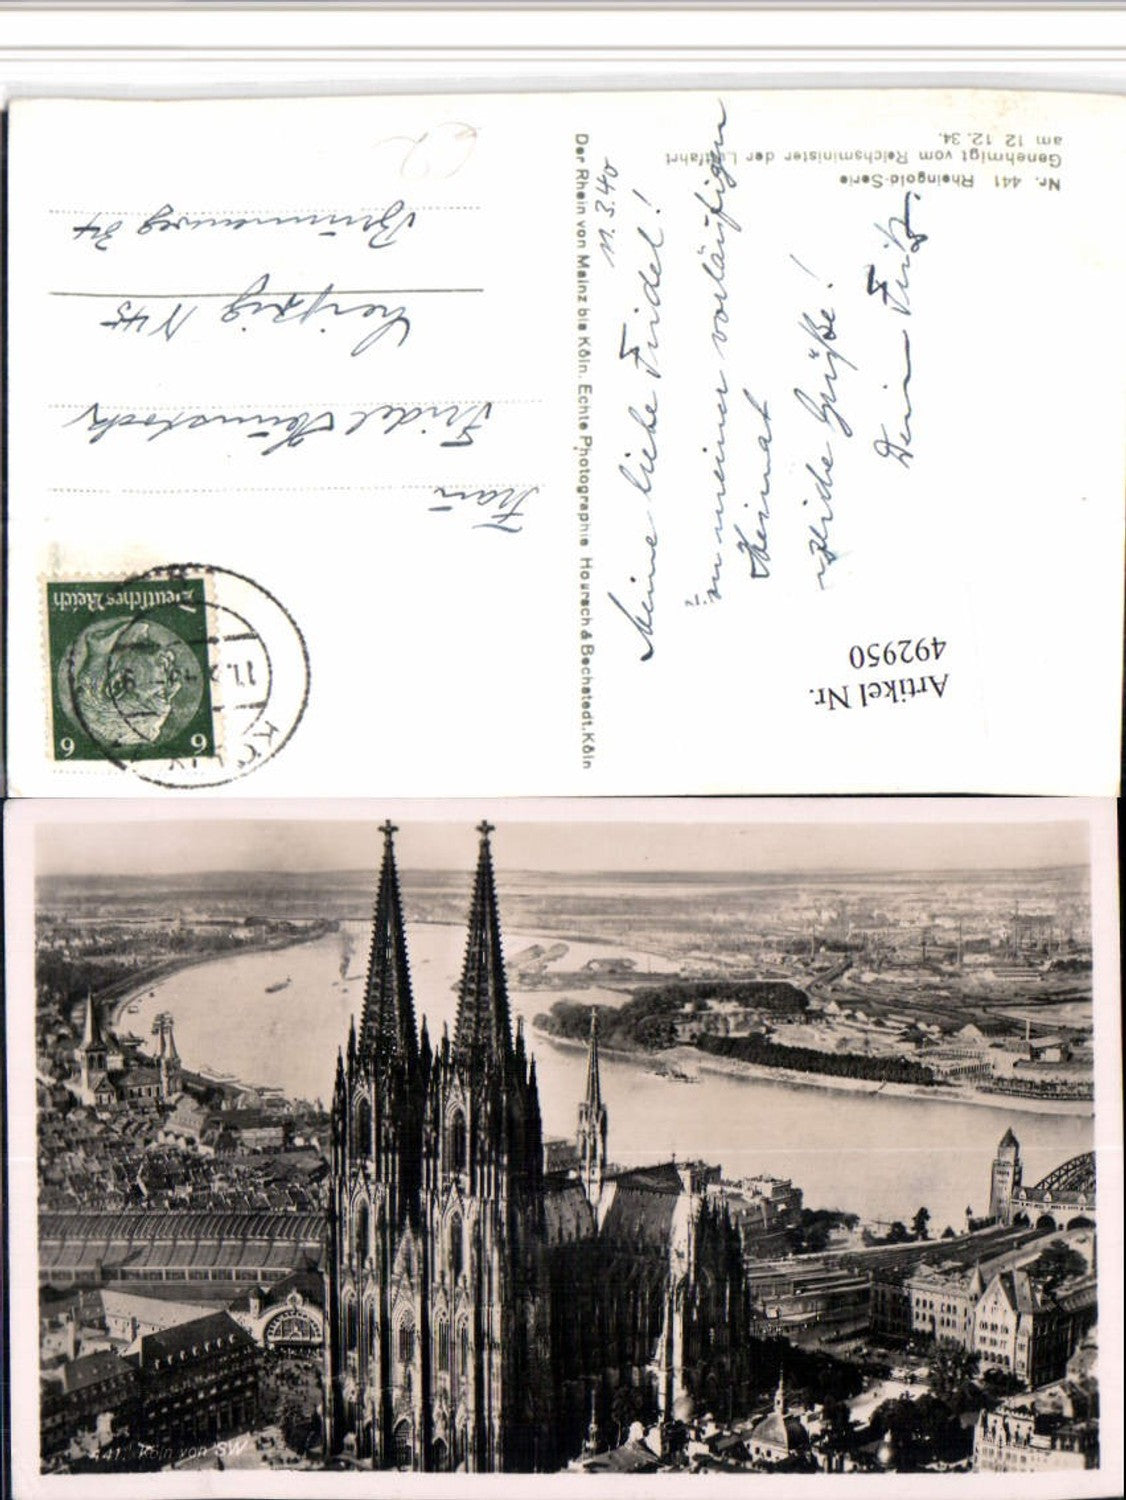 Nr. 441 Rheingold-Serie
Genehmigt vom Reichsminister der Luftfahrt
am 12 12. 34.
Der Rhein von Mainz bis Köln. Echte Photographie Hoursch & Bechstedt. Köln
11.3.40
Meine liebe Fridel!
meiner vorläufigen
Heimat
Grüße!
Dein Fritz.
Artikel Nr.
492950
Deutsches Reich
6 6
KÖLN
Frau
Fridel
Leipzig N 45
34
441. Köln von SW